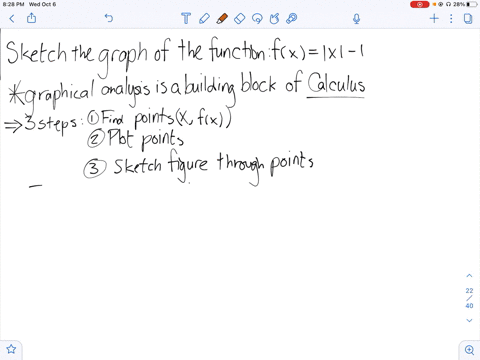 8:28 PM Wed Oct 6 28%
Sketch the graph of the function: f(x) = |x| - 1
*graphical analysis is a building block of Calculus
⇒ 3 steps: ① Find points (x, f(x))
② Plot points
③ Sketch figure through points
22
/
40